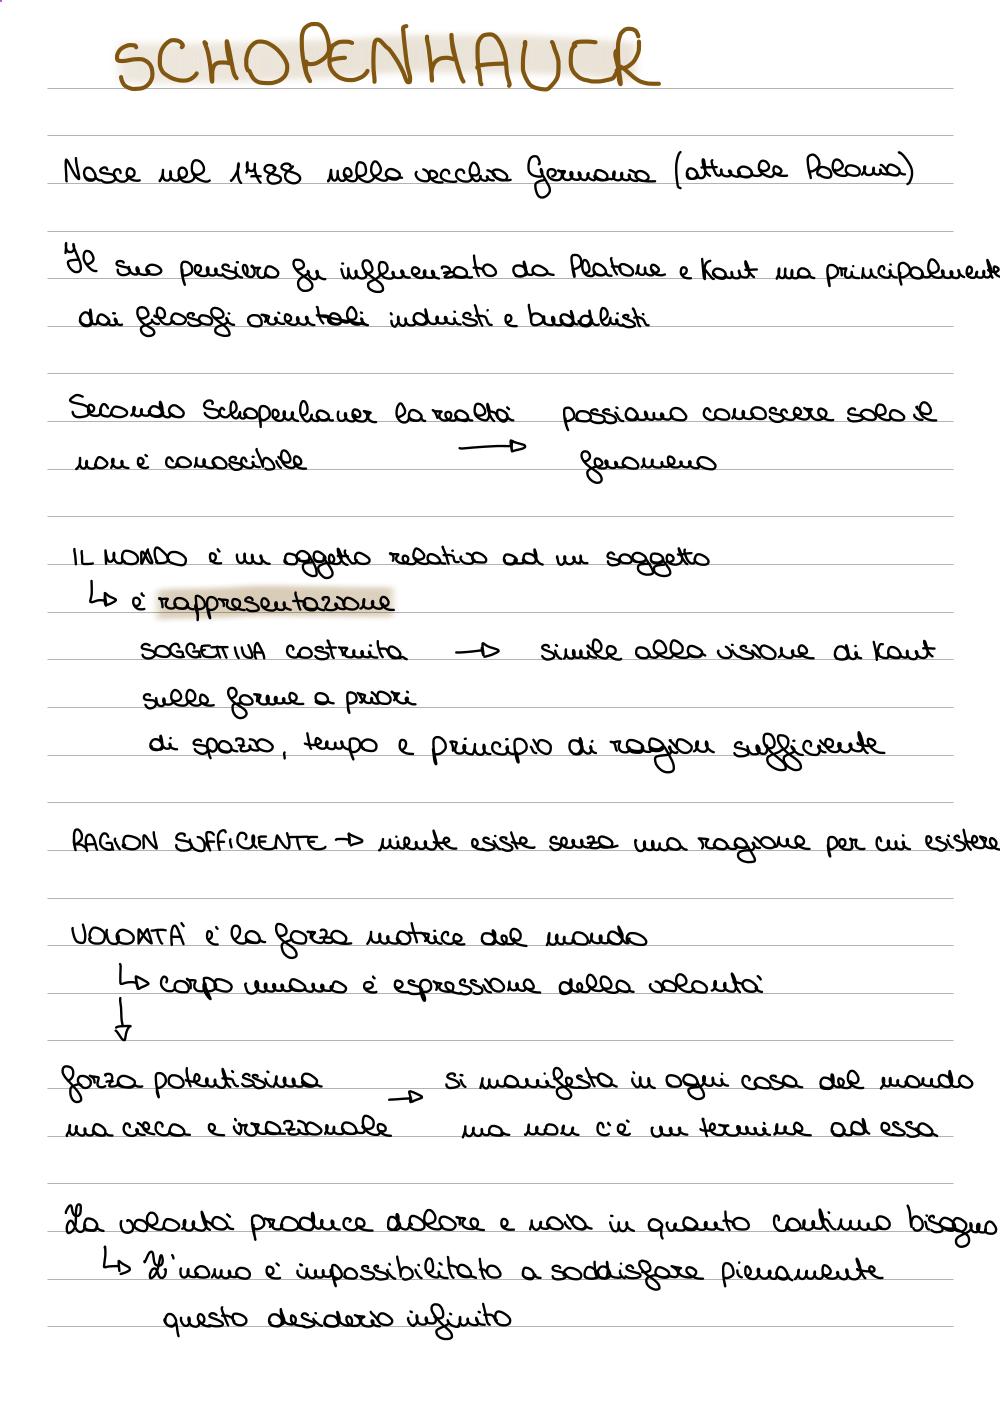 SCHOPENHAUER
Nasce nel 1788 nella vecchia Germania (attuale Polonia)
Il suo pensiero fu influenzato da Platone e Kant ma principalmente
dai filosofi orientali induisti e buddhisti
Secondo Schopenhauer la realtà possiamo conoscere solo il
non è conoscibile → fenomeno
IL MONDO è un oggetto relativo ad un soggetto
↳ è rappresentazione
SOGGETTIVA costruita → simile alla visione di Kant
sulle forme a priori
di spazio, tempo e principio di ragion sufficiente
RAGION SUFFICIENTE → niente esiste senza una ragione per cui esistere
VOLONTÀ è la forza motrice del mondo
↳ corpo umano è espressione della volontà
↓
forza potentissima → si manifesta in ogni cosa del mondo
ma cieca e irrazionale ma non c'è un termine ad essa
La volontà produce dolore e noia in quanto continuo bisogno
↳ L'uomo è impossibilitato a soddisfare pienamente
questo desiderio infinito